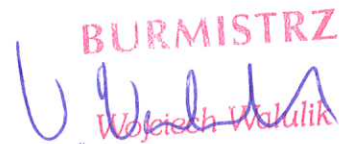 BURMISTRZ
Wojciech Walulik